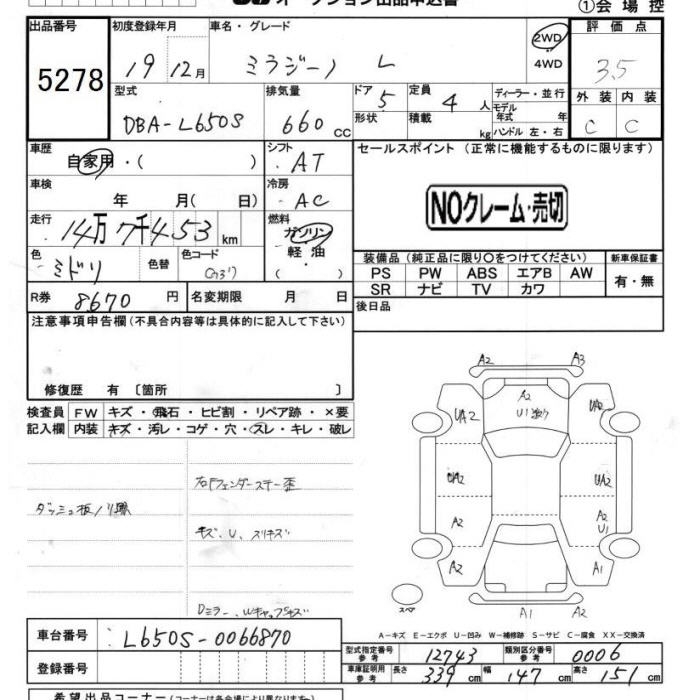 オークション出品申込書
①会場控
出品番号 初度登録年月 車名・グレード 評価点
5278 19年12月 ミラジーノ L 2WD 4WD 3.5
型式 排気量 ドア 5 定員 4人 ディーラー・並行 外装 内装
DBA-L650S 660cc 形状 積載 kg モデル年式 年 C C
ハンドル 左・右
車歴 シフト セールスポイント (正常に機能するものに限ります)
自家用・( ) AT
車検 冷房
年 月( 日) AC NOクレーム・売切
走行 燃料
14万7千453km ガソリン
色 色替 色コード 軽油 装備品 (純正品に限り〇をつけてください) 新車保証書
ミドリ ( ) PS PW ABS エアB AW 有・無
R券 名変期限 SR ナビ TV カワ
8670円 月 日 後日品
注意事項申告欄(不具合内容等は具体的に記入して下さい)
修復歴 有 〔箇所 〕
検査員 FW キズ・飛石・ヒビ割・リペア跡・×要
記入欄 内装 キズ・汚レ・コゲ・穴・スレ・キレ・破レ
A2 A3
A2
UA2 U1 UA2
右Fフェンダーステー歪
UA2 UA2
ダッシュ板ノリ跡
キズ、U、スリキズ
A2 A2
U1
A2 A1
スペア
Dミラー、Wキャップキズ
A1 A2
A-キズ E-エクボ U-凹み W-補修跡 S-サビ C-腐食 XX-交換済
車台番号 L650S-0066870
型式指定番号 参考 12743 類別区分番号 参考 0006
登録番号
車庫証明用 参考 長さ 339cm 幅 147cm 高さ 151cm
希望出品コーナー(コーナーは各会場により異なります)